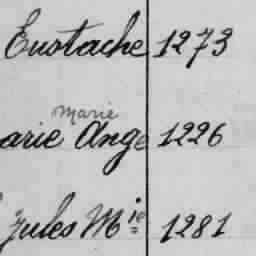 Eustache 1273
Marie
arie Ange 1226
Jules Mie 1281